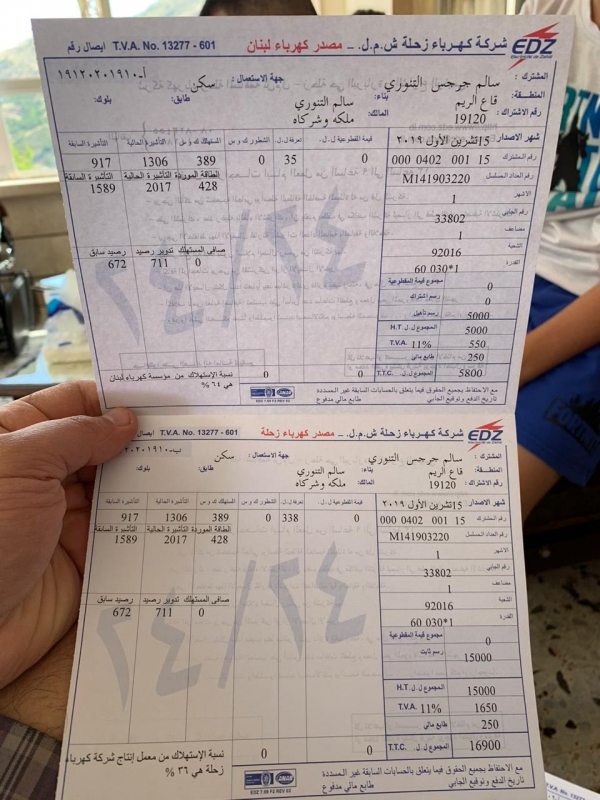 شركة كهرباء زحلة ش.م.ل. ــ مصدر كهرباء لبنان T.V.A. No. 13277 - 601 ايصال رقم
EDZ
Electricité de Zahlé
أ-١٩١٢٠٢٠١٩١٠
المشترك : سالم جرجس التنوري جهة الاستعمال : سكن
المنطقة : قاع الريم بناء: سالم التنوري طابق: بلوك:
رقم الاشتراك : 19120 المالك: ملكه وشركاه
شهر الاصدار 15تشرين الأول ٢٠١٩ قيمة المقطوعية ل.ل. تعرفة ل.ل. الشطور ك و س المستهلك ك و س التأشيرة الحالية التأشيرة السابقة
رقم المشترك 000 0402 001 15 0 35 0 389 1306 917
رقم العداد المسلسل M141903220 الطاقة الموردة التأشيرة الحالية التأشيرة السابقة
428 2017 1589
الاشهر 1
رقم الجابي 33802
مضاعف 1
الشعبة 92016 صافي المستهلك تدوير رصيد رصيد سابق
القدرة 60 030*1 0 711 672
مجموع قيمة المقطوعية 0
رسم اشتراك 0
رسم تأهيل 5000
المجموع ل.ل. H.T. 5000
T.V.A. 11% 550
طابع مالي 250
المجموع ل.ل. T.T.C. 5800 0 0
نسبة الإستهلاك من مؤسسة كهرباء لبنان
هي ٦٤ %
مع الاحتفاظ بجميع الحقوق فيما يتعلق بالحسابات السابقة غير المسددة
تاريخ الدفع وتوقيع الجابي طابع مالي مدفوع
EDZ 7.09 F2 REV 03
شركة كهرباء زحلة ش.م.ل. ــ مصدر كهرباء زحلة T.V.A. No. 13277 - 601 ايصال رقم
EDZ
Electricité de Zahlé
المشترك : سالم جرجس التنوري جهة الاستعمال : سكن
المنطقة : قاع الريم بناء: سالم التنوري طابق: بلوك:
رقم الاشتراك : 19120 المالك: ملكه وشركاه
شهر الاصدار 15تشرين الأول ٢٠١٩ قيمة المقطوعية ل.ل. تعرفة ل.ل. الشطور ك و س المستهلك ك و س التأشيرة الحالية التأشيرة السابقة
رقم المشترك 000 0402 001 15 0 338 0 389 1306 917
رقم العداد المسلسل M141903220 الطاقة الموردة التأشيرة الحالية التأشيرة السابقة
428 2017 1589
الاشهر 1
رقم الجابي 33802
مضاعف 1
الشعبة 92016 صافي المستهلك تدوير رصيد رصيد سابق
القدرة 60 030*1 0 711 672
مجموع قيمة المقطوعية 0
رسم ثابت 15000
المجموع ل.ل. H.T. 15000
T.V.A. 11% 1650
طابع مالي 250
المجموع ل.ل. T.T.C. 16900 0 0
نسبة الإستهلاك من معمل إنتاج شركة كهرباء
زحلة هي ٣٦ %
مع الاحتفاظ بجميع الحقوق فيما يتعلق بالحسابات السابقة غير المسددة
تاريخ الدفع وتوقيع الجابي طابع مالي مدفوع
EDZ 7.09 F2 REV 03